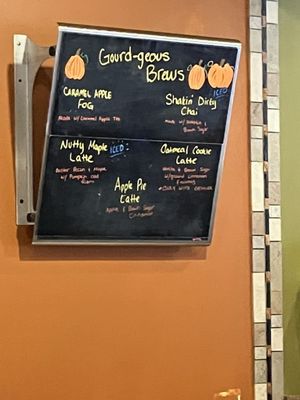 Gourd-geous
Brews
CARAMEL APPLE
FOG
Made w/ Caramel Apple Tea
ICED
Shakin' Dirty
Chai
Made w/ Pumpkin
and Brown Sugar
Nutty Maple
Latte
ICED
Butter Pecan & Maple
w/ Pumpkin Cold
Foam
Oatmeal Cookie
Latte
Vanilla & Brown Sugar
w/ ground Cinnamon
Apple Pie
Latte
Apple & Brown Sugar
Cinnamon